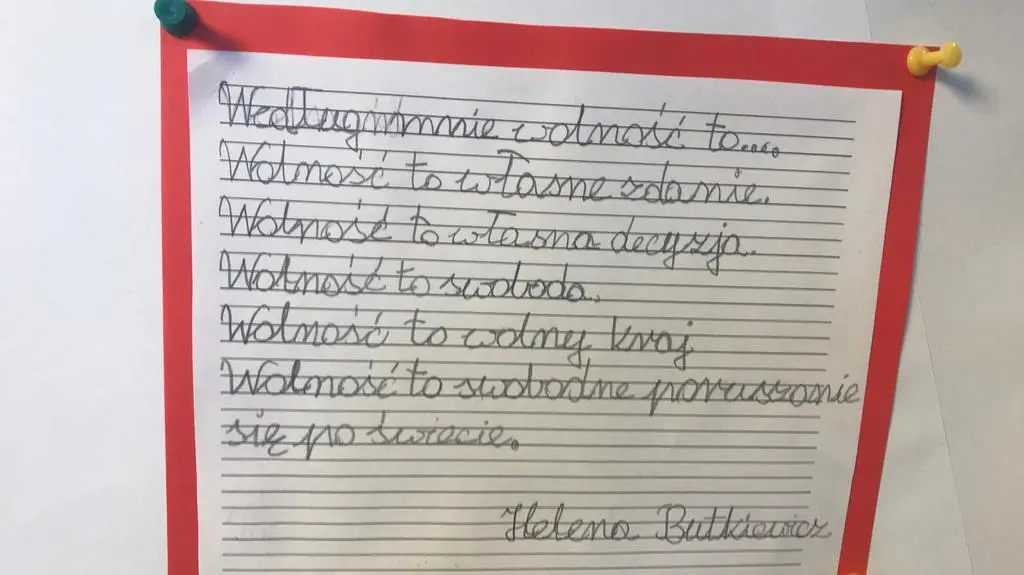 Według mnie wolność to.....
Wolność to własne zdanie.
Wolność to własna decyzja.
Wolność to swoboda.
Wolność to wolny kraj
Wolność to swobodne poruszanie
się po świecie.
Helena Butkiewicz